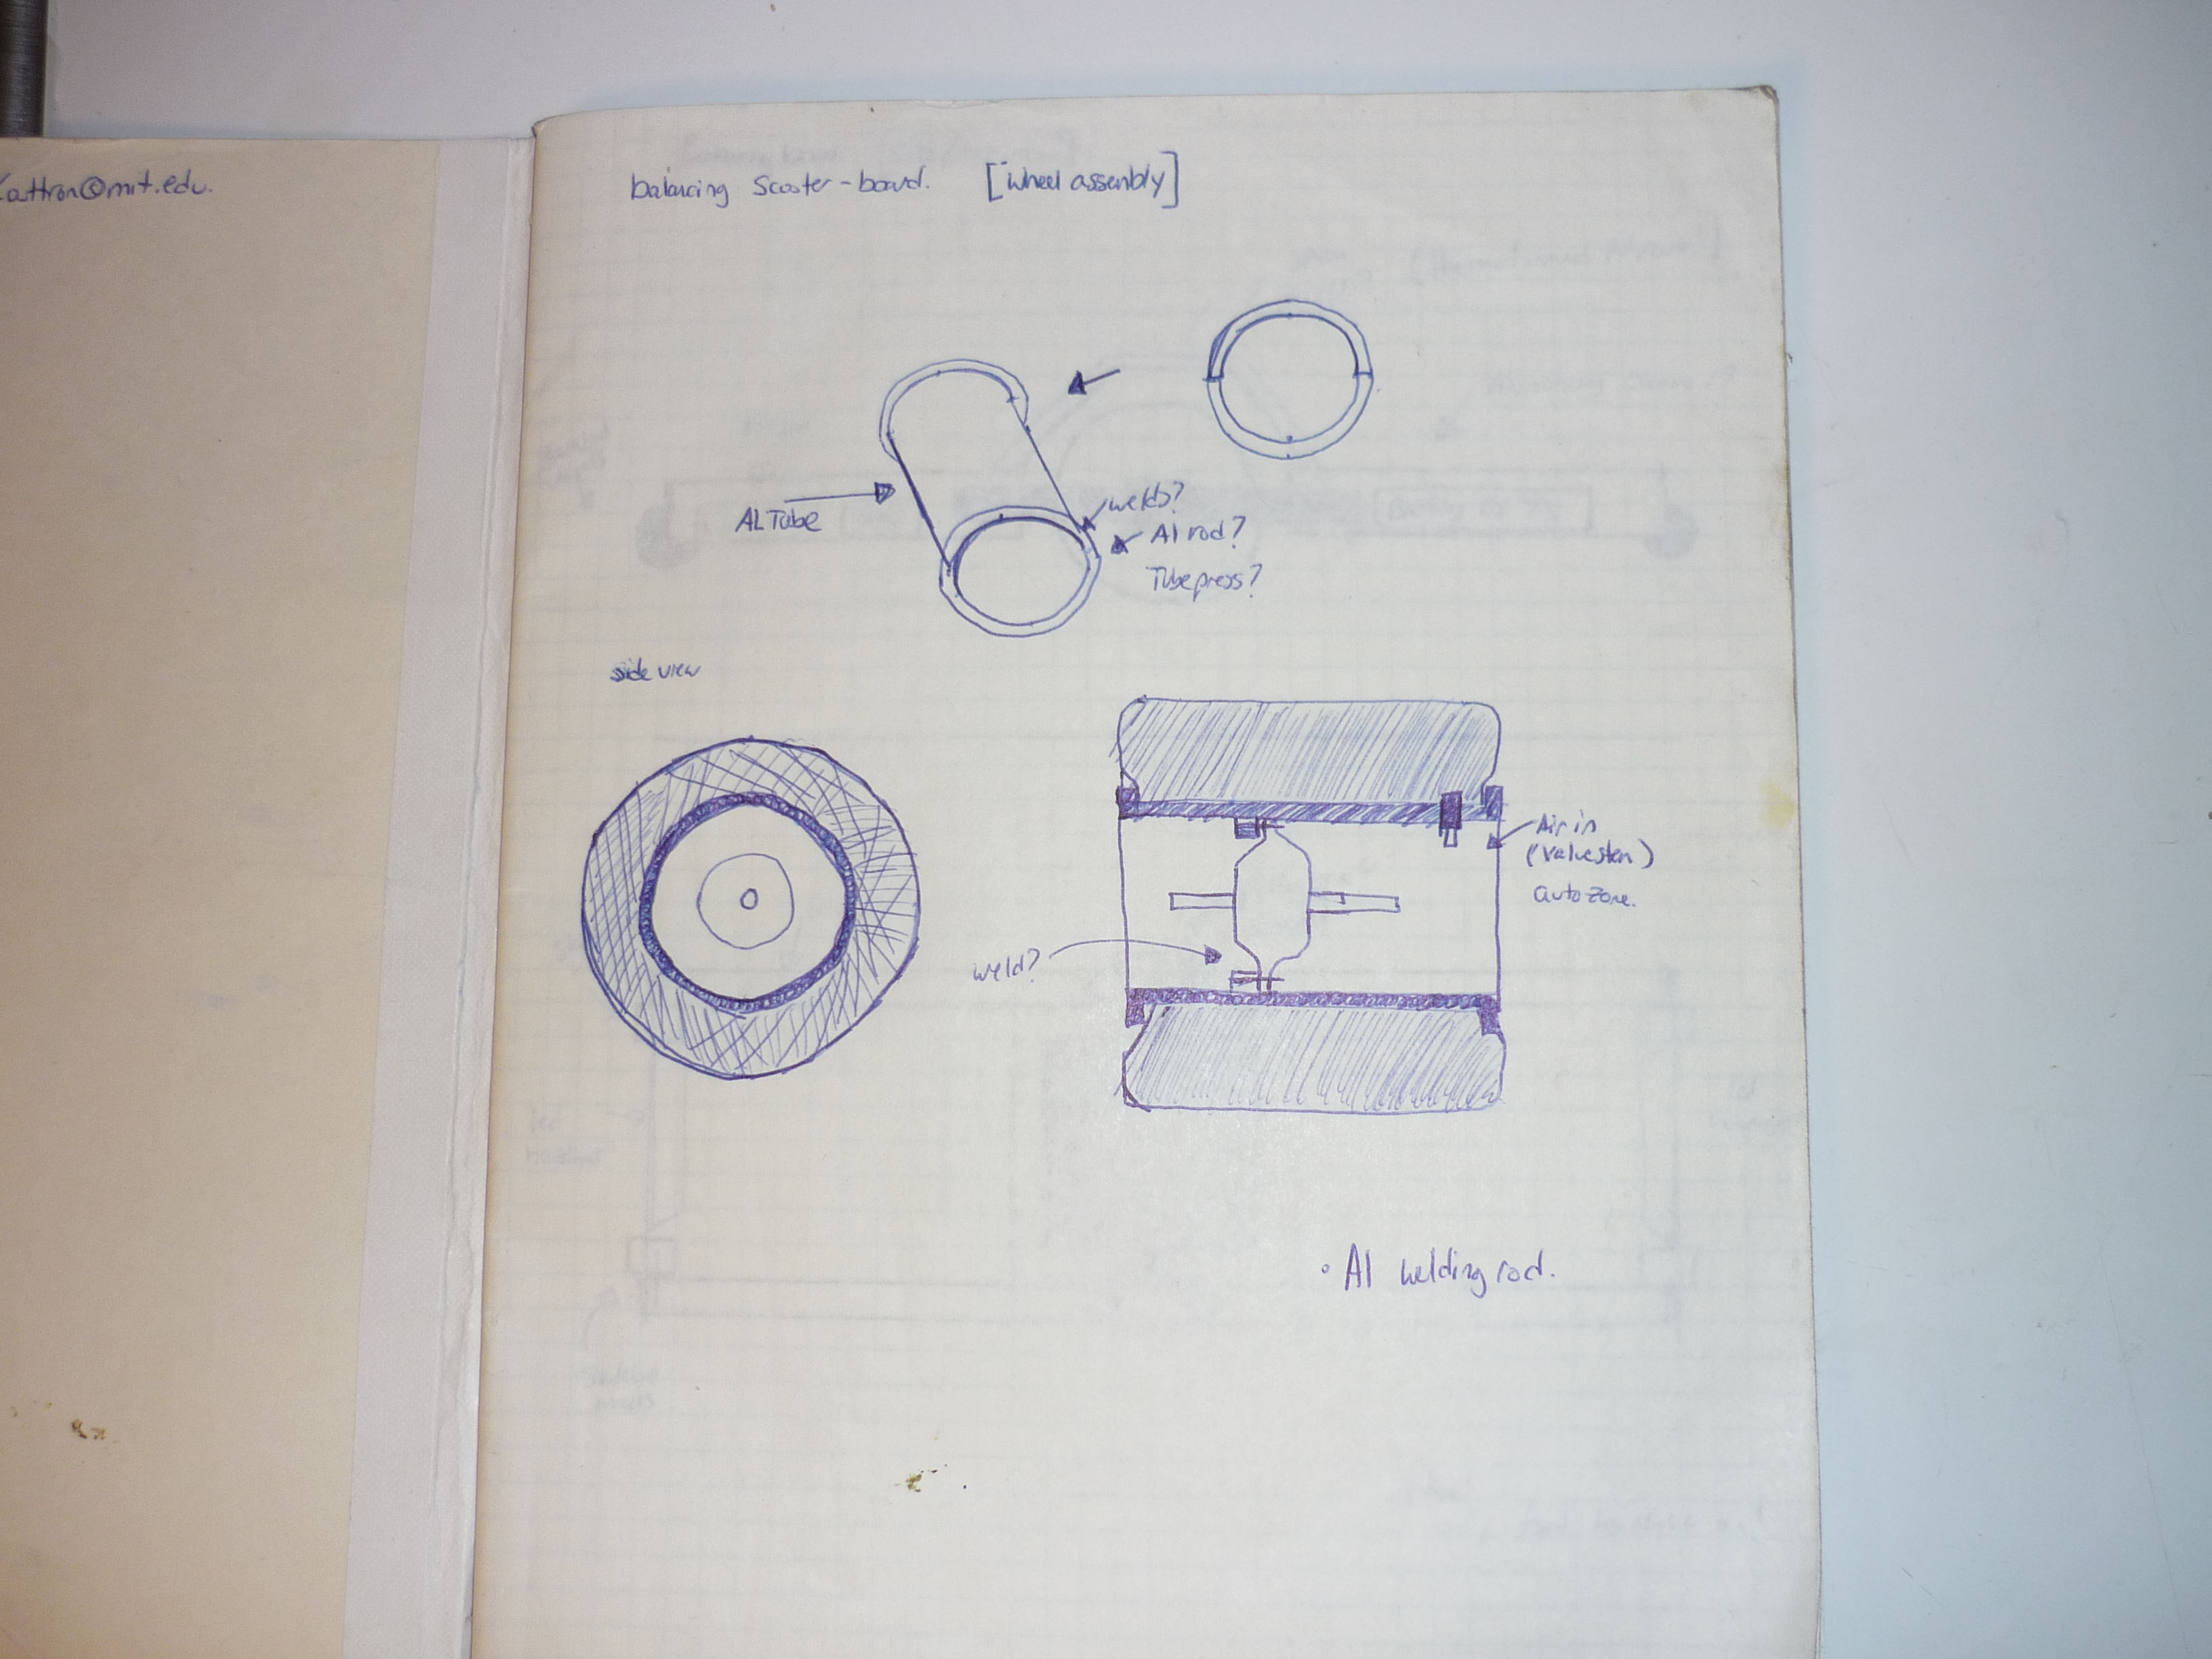 balancing Scooter-board. [wheel assembly]
AL Tube
weld?
Al rod?
Tube press?
side view
Air in
(valve stem)
autozone.
weld?
• Al welding rod.